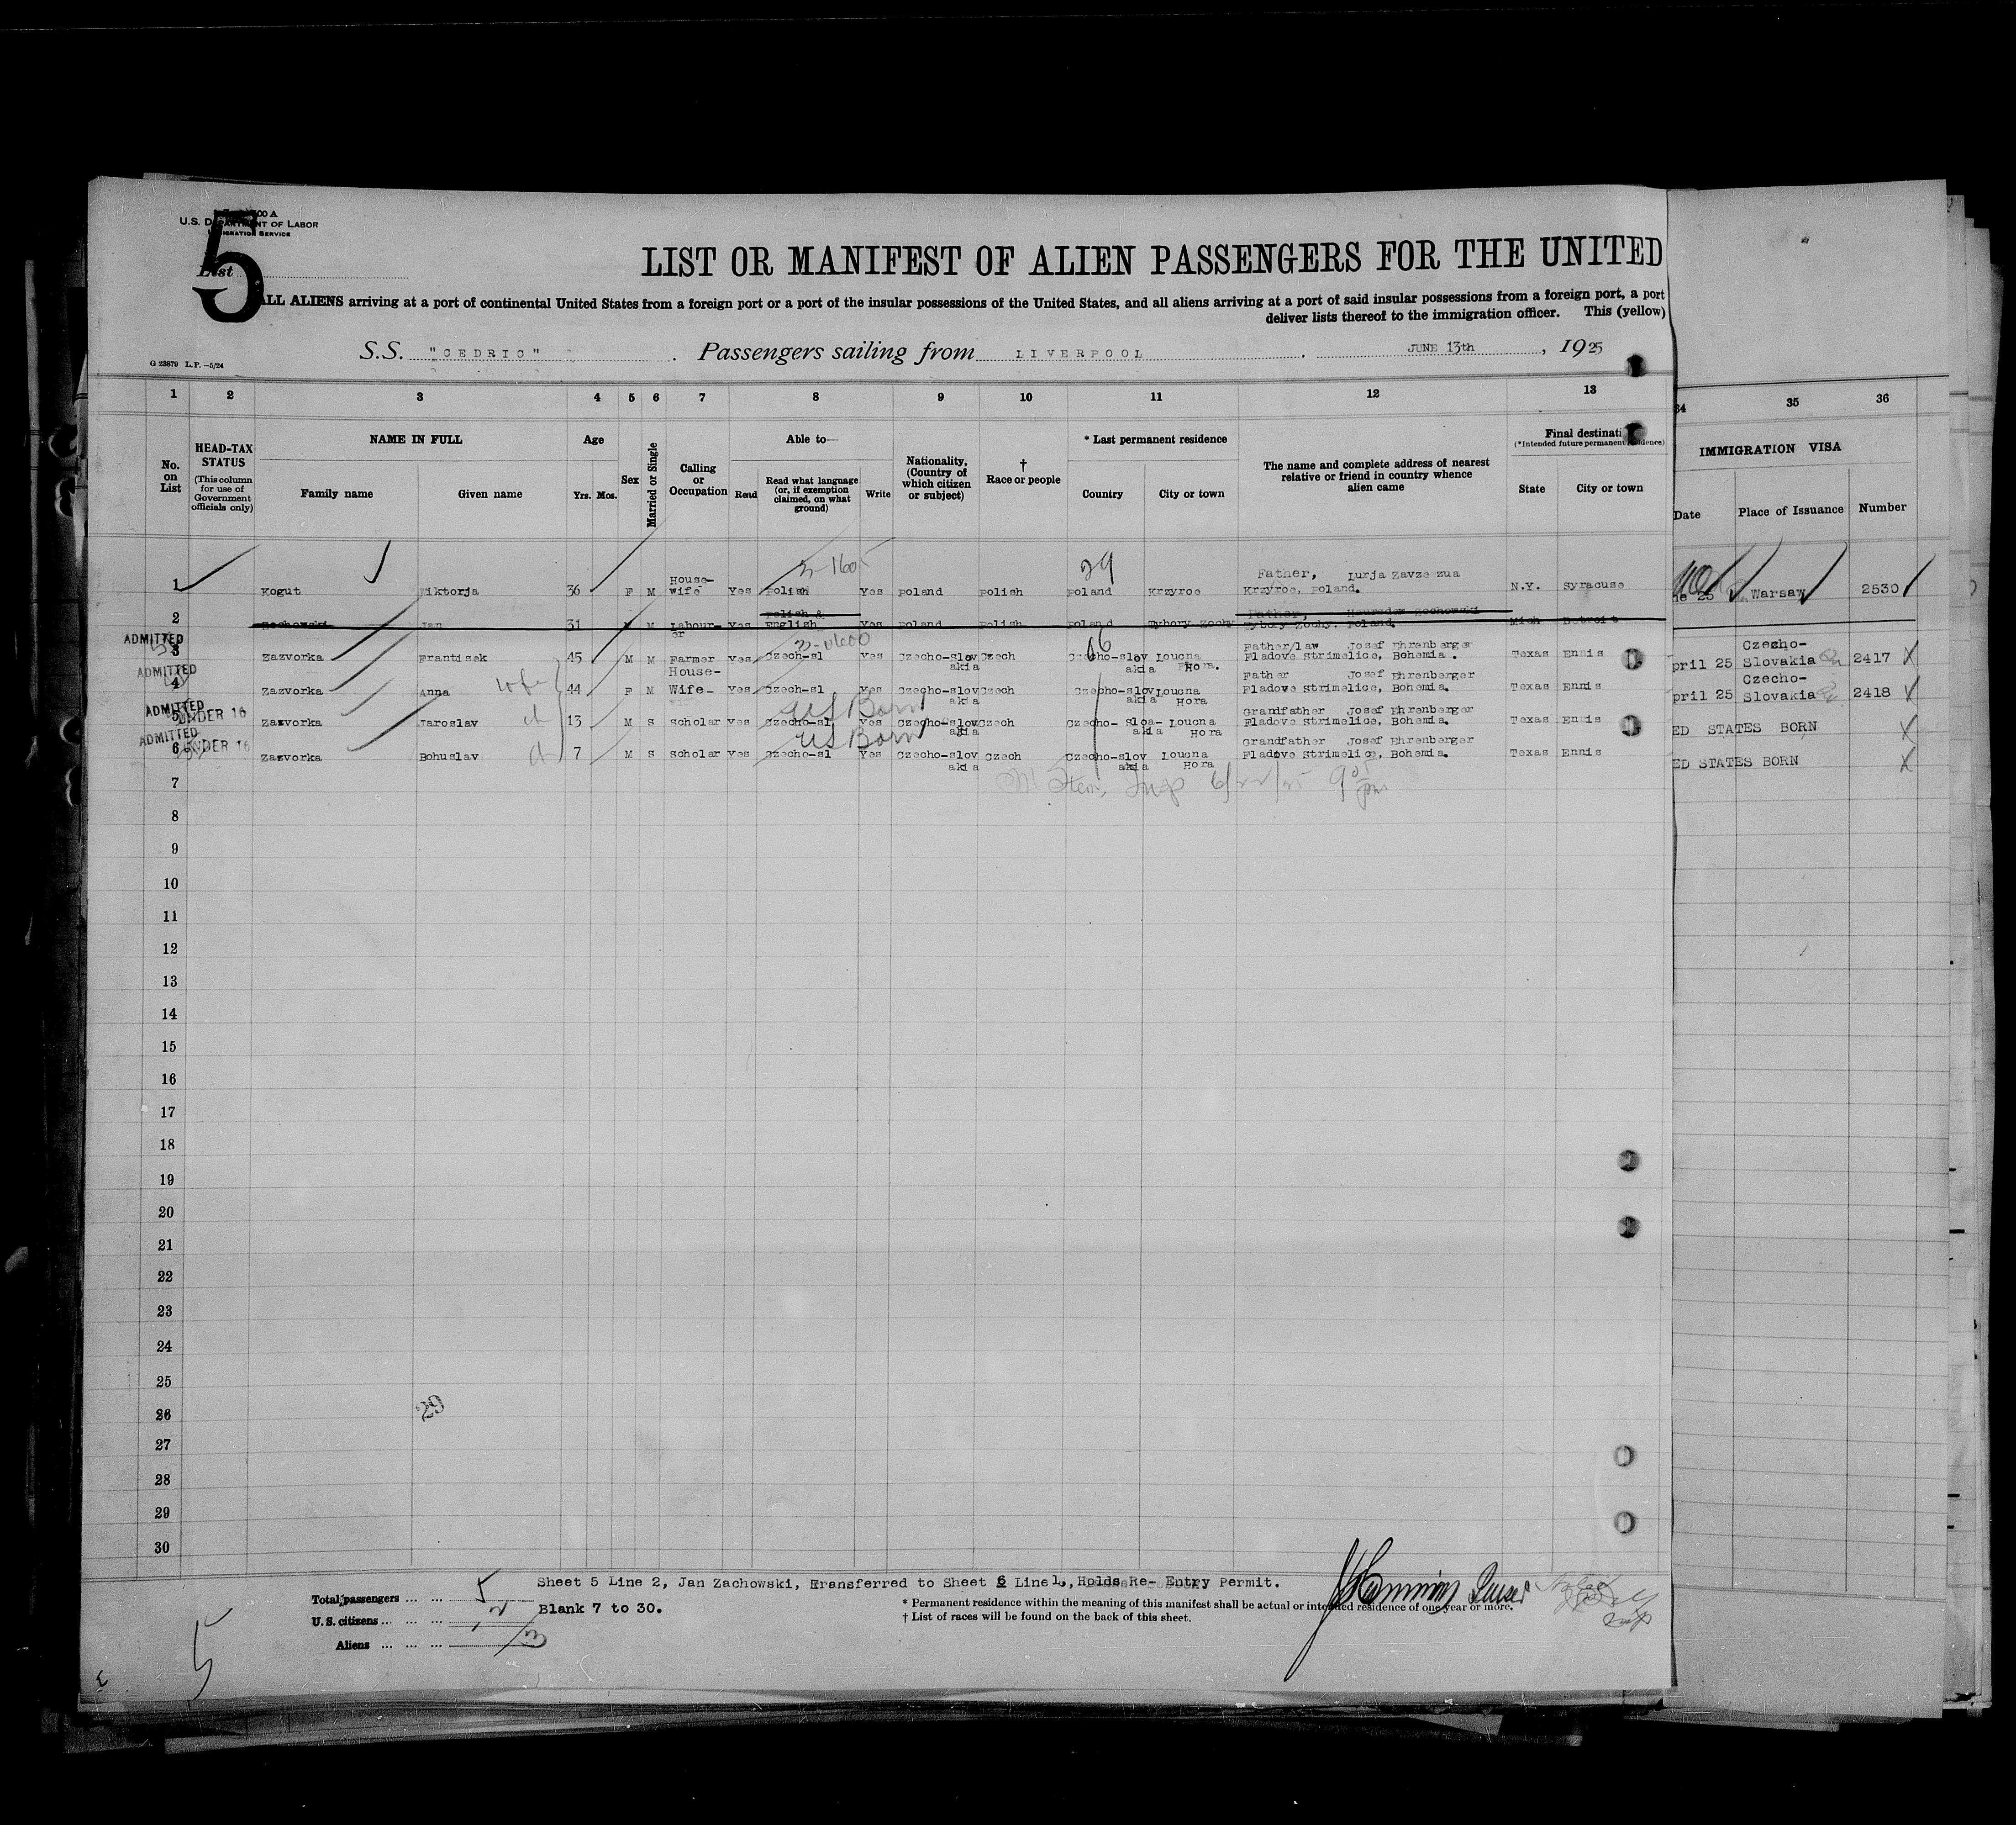 5
00 A
U.S. DEPARTMENT OF LABOR
IMMIGRATION SERVICE
List
LIST OR MANIFEST OF ALIEN PASSENGERS FOR THE UNITED
ALL ALIENS arriving at a port of continental United States from a foreign port or a port of the insular possessions of the United States, and all aliens arriving at a port of said insular possessions from a foreign port, a port
deliver lists thereof to the immigration officer. This (yellow)
S.S. "CEDRIC" . Passengers sailing from LIVERPOOL . JUNE 13th , 1925
G 23879 L.P. —5/24
1 2 3 4 5 6 7 8 9 10 11 12 13 34 35 36
No. on List
HEAD-TAX STATUS (This column for use of Government officials only)
NAME IN FULL
Family name Given name
Age
Yrs. Mos.
Sex
Married or Single
Calling or Occupation
Able to—
Read
Read what language (or, if exemption claimed, on what ground)
Write
Nationality, (Country of which citizen or subject)
† Race or people
* Last permanent residence
Country City or town
The name and complete address of nearest relative or friend in country whence alien came
Final destinati
(*Intended future permanent residence)
State City or town
IMMIGRATION VISA
Date Place of Issuance Number
3-1605 29
1 Kogut Wiktorja 36 F M House-wife Yes Polish Yes Poland Polish Poland Krzyroe Father, Lurja Zavze zua Krzyroe, Poland. N.Y. Syracuse ne 25 Warsaw 2530
2 Zochowski Jan 31 M M Labour-er Yes Polish & English Yes Poland Polish Poland Tybory Zochy Father, Zochowski Tybory Zochy, Poland. Mich Detroit
ADMITTED 3 Zazvorka Frantisek 45 M M Farmer Yes Czech-sl Yes Czecho-slovakia Czech Czecho-slovakia Loucna Hora. Father/law Josef Ehrenberger Fladove Strimelice, Bohemia. Texas Ennis pril 25 Czecho-Slovakia 2417 X
ADMITTED 4 Zazvorka Anna wife 44 F M House-Wife- Yes Czech-sl Yes Czecho-slovakia Czech Czecho-slovakia Loucna Hora Father Josef Ehrenberger Fladove Strimelice, Bohemia. Texas Ennis pril 25 Czecho-Slovakia 2418 X
ADMITTED 5 UNDER 16 Zazvorka Jaroslav ch 13 M S Scholar Yes Czecho-sl US Born Yes Czecho-slovakia Czech Czecho-Sloa-akia Loucna Hora Grandfather Josef Ehrenberger Fladove Strimelice, Bohemia. Texas Ennis ED STATES BORN X
ADMITTED 6 UNDER 16 Zazvorka Bohuslav ch 7 M S Scholar Yes Czecho-sl US Born Yes Czecho-slovakia Czech Czecho-slovakia Loucna Hora Grandfather Josef Ehrenberger Fladove Strimelice, Bohemia. Texas Ennis ED STATES BORN X
7 Insp 6/22/25 9 05 pm
8
9
10
11
12
13
14
15
16
17
18
19
20
21
22
23
24
25
26 29
27
28
29
30
Sheet 5 Line 2, Jan Zachowski, Transferred to Sheet 6 Line 1., Holds Re- Entry Permit.
Total passengers ... ... 5
Blank 7 to 30.
* Permanent residence within the meaning of this manifest shall be actual or intended residence of one year or more.
U.S. citizens ... ... ... 2
† List of races will be found on the back of this sheet.
Aliens ... ... ... 3
5